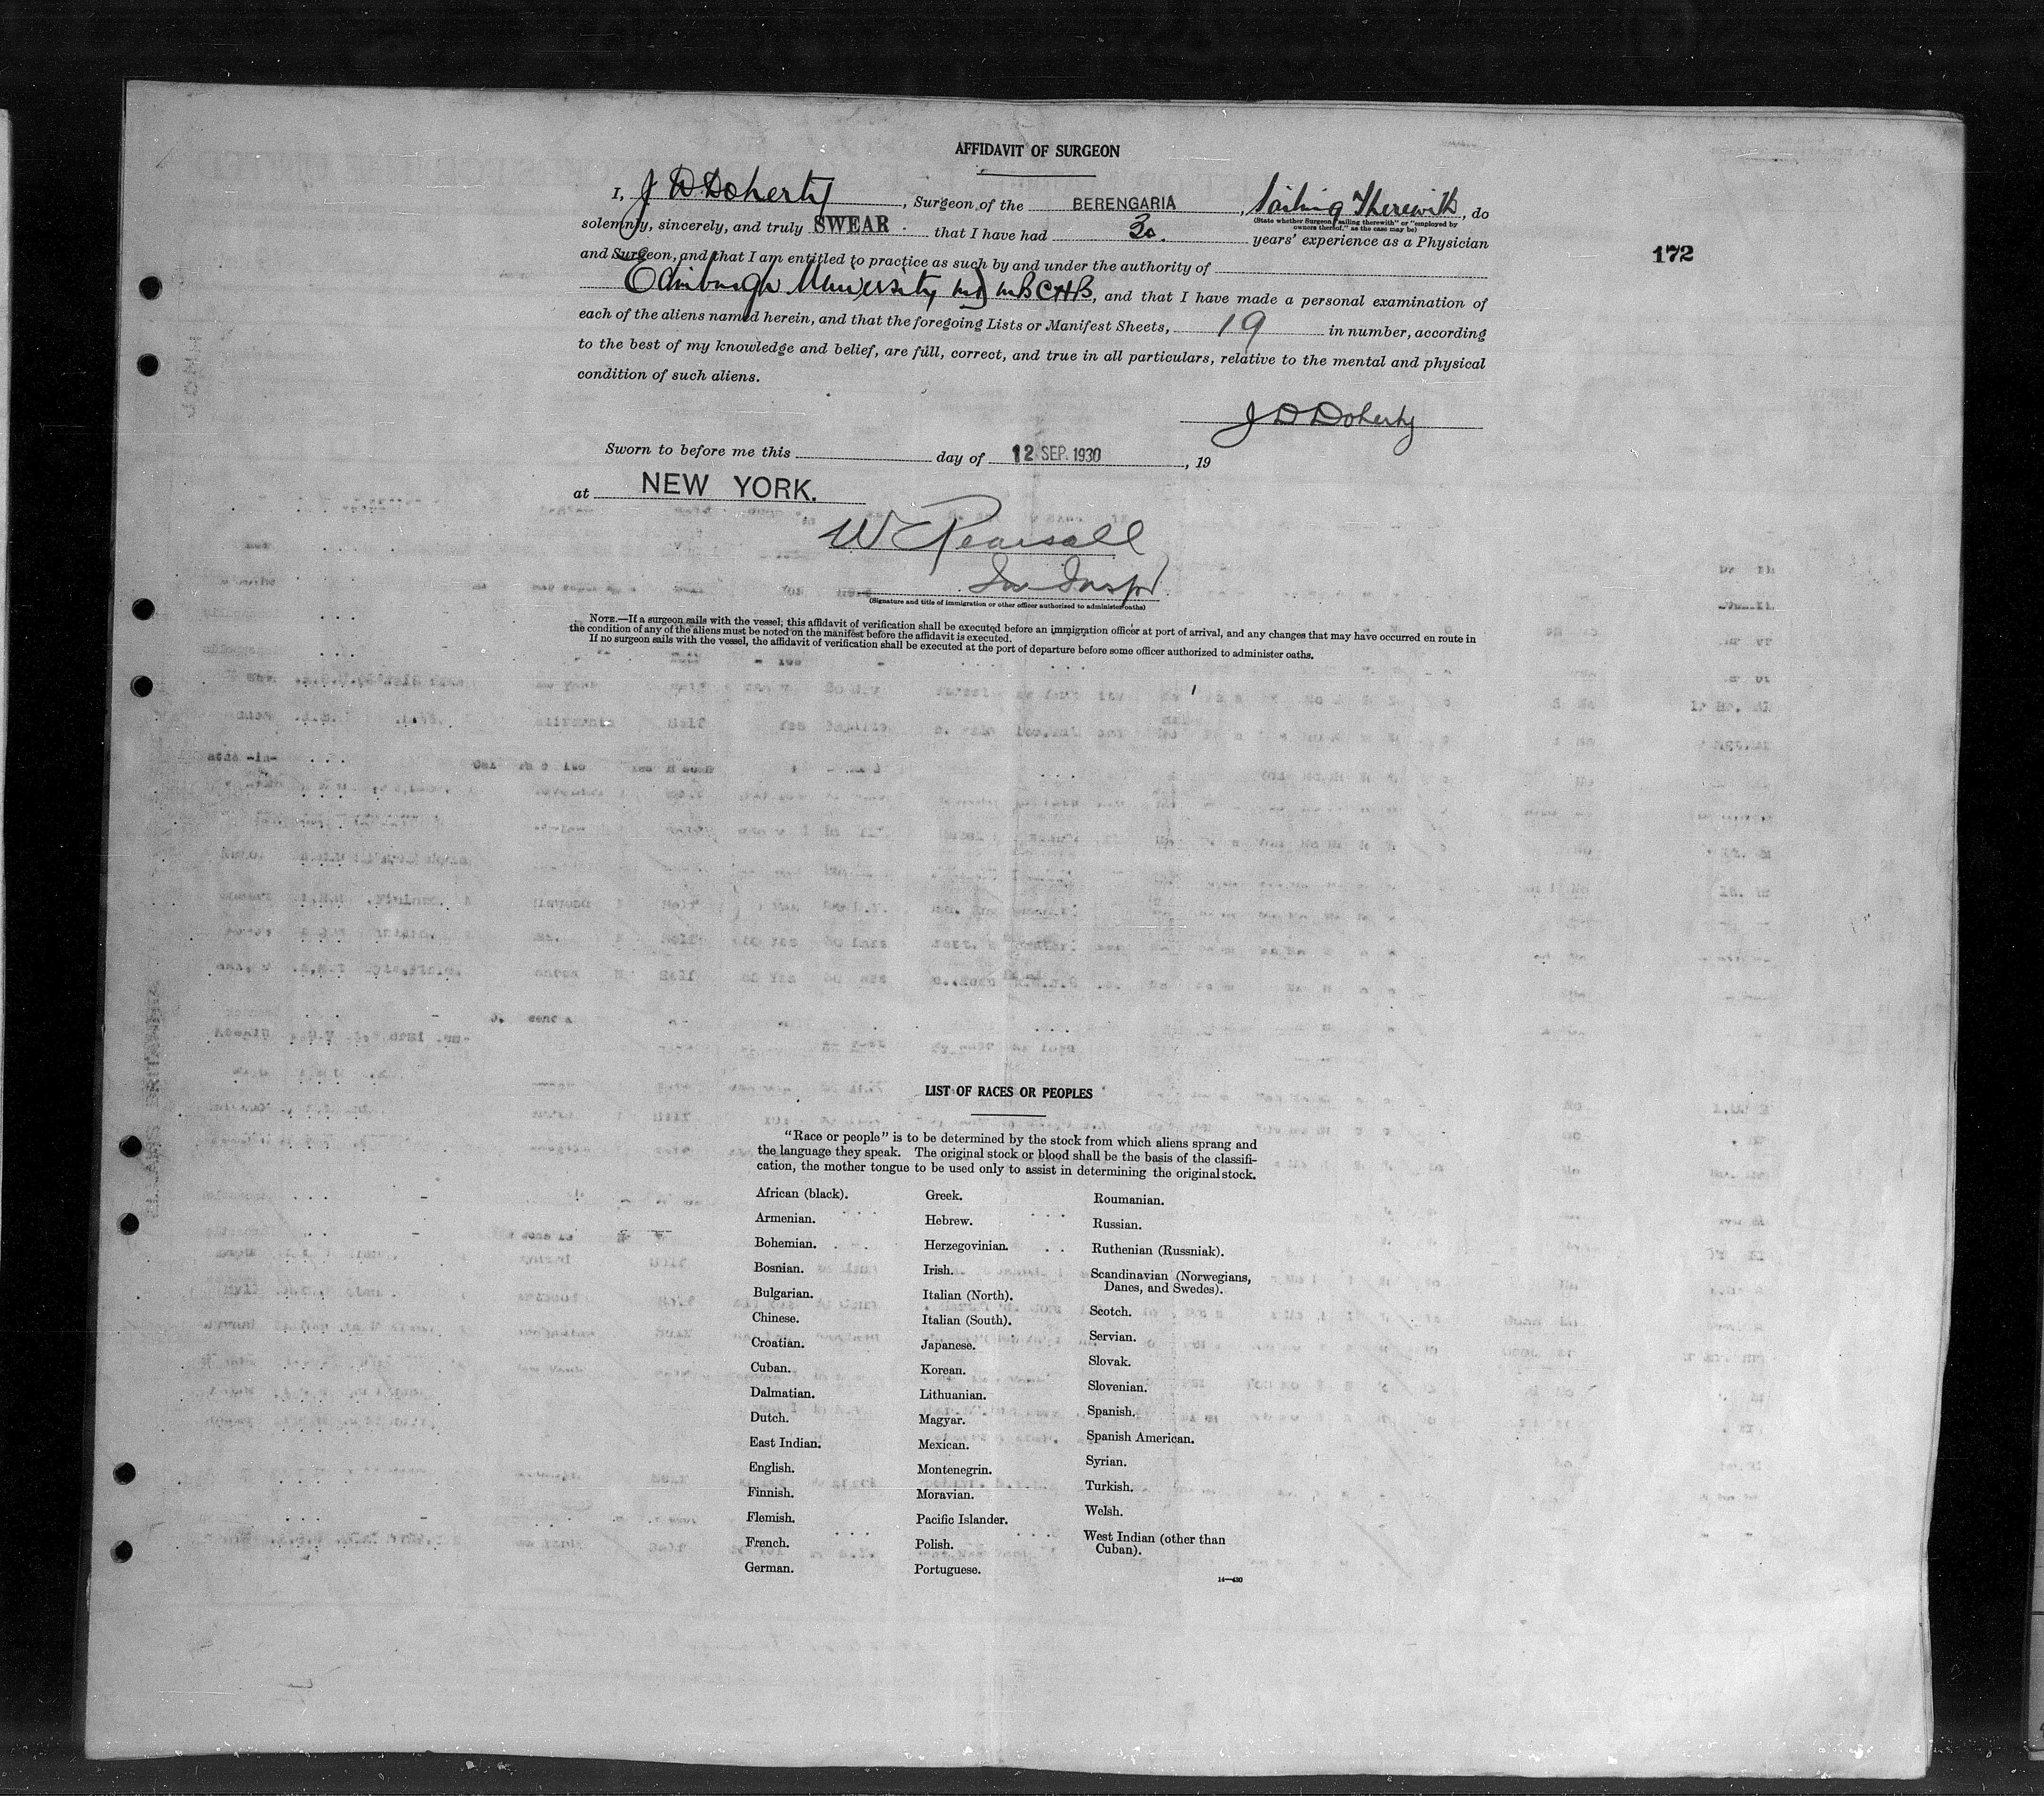 AFFIDAVIT OF SURGEON
I, J D Doherty, Surgeon of the BERENGARIA, Sailing Therewith, do
(State whether Surgeon "sailing therewith" or "employed by
owners thereof," as the case may be)
solemnly, sincerely, and truly SWEAR that I have had 30. years' experience as a Physician
172
and Surgeon, and that I am entitled to practice as such by and under the authority of
Edinburgh University MD MB CHB, and that I have made a personal examination of
each of the aliens named herein, and that the foregoing Lists or Manifest Sheets, 19 in number, according
to the best of my knowledge and belief, are full, correct, and true in all particulars, relative to the mental and physical
condition of such aliens.
J D Doherty
Sworn to before me this day of 12 SEP. 1930, 19
at NEW YORK.
W Pearsall
Imm Inspr
(Signature and title of immigration or other officer authorized to administer oaths)
NOTE.—If a surgeon sails with the vessel, this affidavit of verification shall be executed before an immigration officer at port of arrival, and any changes that may have occurred en route in
the condition of any of the aliens must be noted on the manifest before the affidavit is executed.
If no surgeon sails with the vessel, the affidavit of verification shall be executed at the port of departure before some officer authorized to administer oaths.
LIST OF RACES OR PEOPLES
"Race or people" is to be determined by the stock from which aliens sprang and
the language they speak. The original stock or blood shall be the basis of the classifi-
cation, the mother tongue to be used only to assist in determining the original stock.
African (black).
Armenian.
Bohemian.
Bosnian.
Bulgarian.
Chinese.
Croatian.
Cuban.
Dalmatian.
Dutch.
East Indian.
English.
Finnish.
Flemish.
French.
German.
Greek.
Hebrew.
Herzegovinian.
Irish.
Italian (North).
Italian (South).
Japanese.
Korean.
Lithuanian.
Magyar.
Mexican.
Montenegrin.
Moravian.
Pacific Islander.
Polish.
Portuguese.
Roumanian.
Russian.
Ruthenian (Russniak).
Scandinavian (Norwegians,
Danes, and Swedes).
Scotch.
Servian.
Slovak.
Slovenian.
Spanish.
Spanish American.
Syrian.
Turkish.
Welsh.
West Indian (other than
Cuban).
14—430